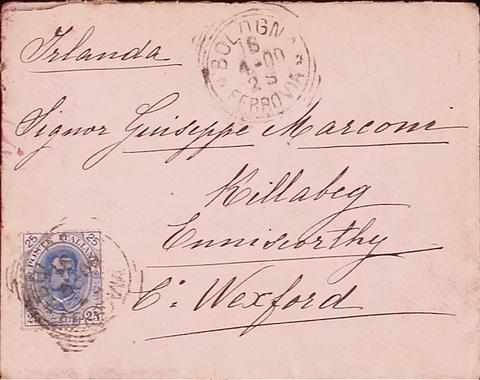 Irlanda
BOLOGNA
16
4-00
2 S
FERROVIA
Signor Guiseppe Marconi
Killabeg
Ennisworthy
Co. Wexford
25 25
POSTE ITALIANE
25 25